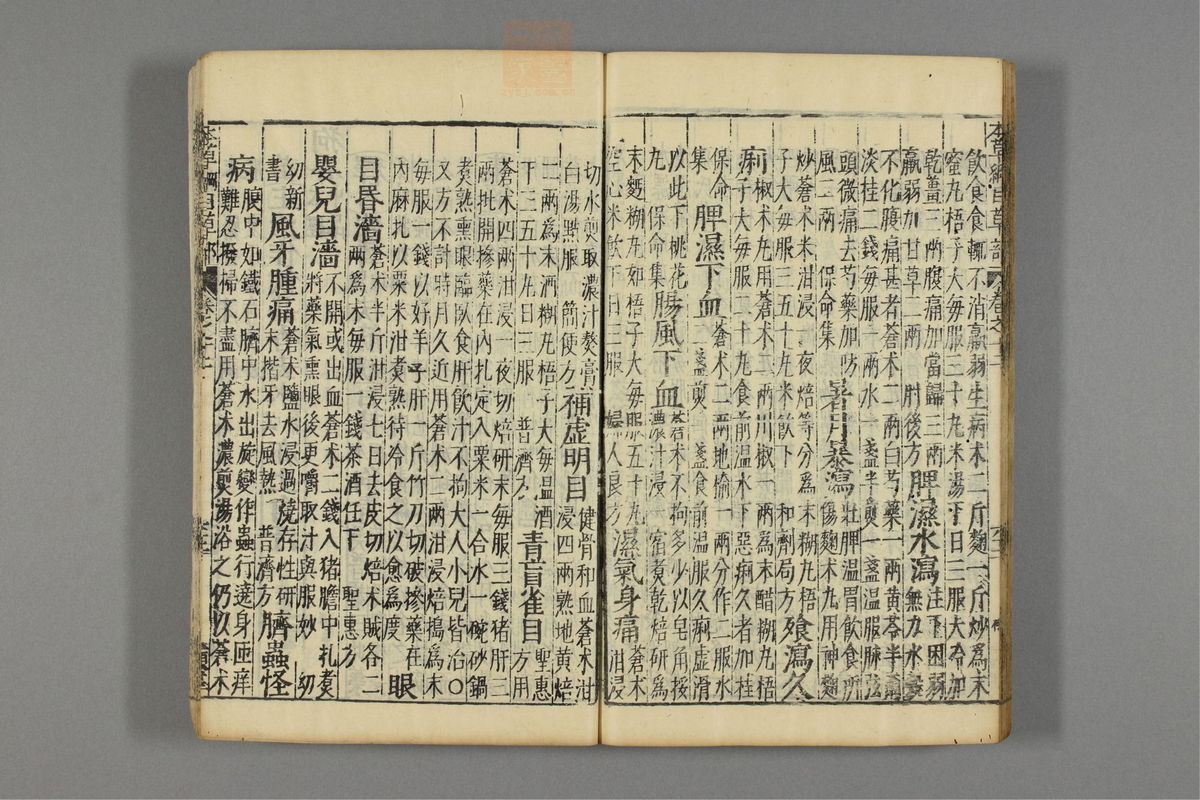 飲食食輒不消羸弱生病术二斤麴一斤炒爲末
蜜丸梧子大每服三十丸米湯下日三服大冷加
乾薑三兩腹痛加當歸三兩脾濕水瀉注下困弱
羸弱加甘草二兩 肘後方 無力水穀
不化腹痛甚者蒼术二兩白芍藥一兩黃芩半兩
淡桂二錢每服一兩水一盞半煎一盞温服脉弦
頭微痛去芍藥加防
風二兩 保命集 暑月暴瀉壯脾温胃飲食所傷麴术丸用神麴
炒蒼术米泔浸一夜焙等分爲末糊丸梧
子大每服三五十丸米飲下 和劑局方 飱瀉久
痢椒术丸用蒼术二兩川椒一兩爲末醋糊丸梧
子大每服二十丸食前温水下惡痢久者加桂
保命集 脾濕下血蒼术二兩地榆一兩分作二服水二盞煎一盞食前温服久痢虚滑
以此下桃花
丸 保命集 腸風下血蒼术不拘多少以皂角挼濃汁浸一宿煮乾焙研爲
末麵糊丸如梧子大每服五十丸
空心米飲下日三服 婦人良方 濕氣身痛蒼术泔浸
切水煎取濃汁熬膏
白湯㸃服 簡便方 補虚明目健骨和血蒼术泔浸四兩熟地黃焙
二兩爲末酒糊丸梧子大每温酒
下三五十丸日三服 普濟方 青盲雀目聖惠方用
蒼术四兩泔浸一夜切焙研末每服三錢猪肝三
兩批開摻藥在內扎定入粟米一合水一碗砂鍋
煮熟熏眼臨臥食肝飲汁不拘大人小兒皆治〇
又方不計時月久近用蒼术二兩泔浸焙搗爲末
每服一錢以好羊子肝一斤竹刀切破摻藥在
內麻扎以粟米泔煮熟待冷食之以愈爲度 眼
目昏濇蒼术半斤泔浸七日去皮切焙术賊各二兩爲末每服一錢茶酒任下 聖惠方
嬰兒目濇不開或出血蒼术二錢入猪膽中扎煮將藥氣熏眼後更嚼取汁與服妙 幼
幼新
書 風牙腫痛蒼术鹽水浸過燒存性研末揩牙去風熱 普濟方 臍蟲怪
病腹中如鐵石臍中水出旋變作蟲行遶身匝痒難忍撥掃不盡用蒼术濃煎湯浴之仍以蒼术